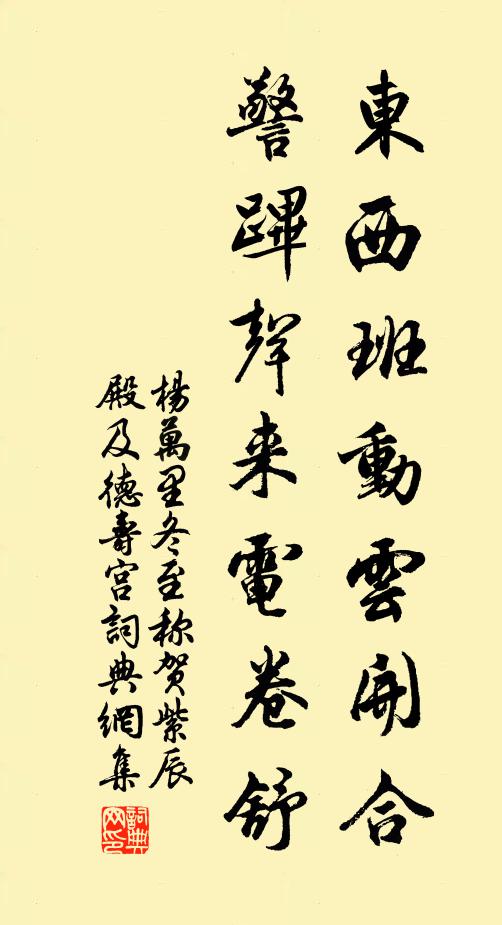 東西班動雲開合
警蹕聲来電卷舒
楊萬里冬至称贺紫辰
殿及德壽宫詞典網集
詞典網印